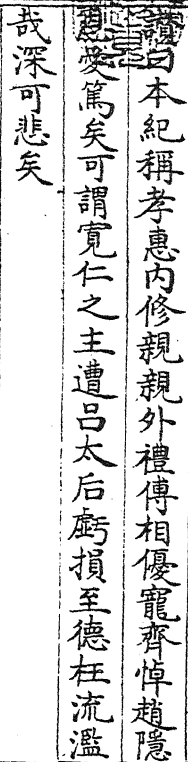 讚曰本紀稱孝惠內修親親外禮傅相優寵齊悼趙隱
恩愛篤矣可謂寬仁之主遭吕太后虧損至德枉流濫
哉深可悲矣